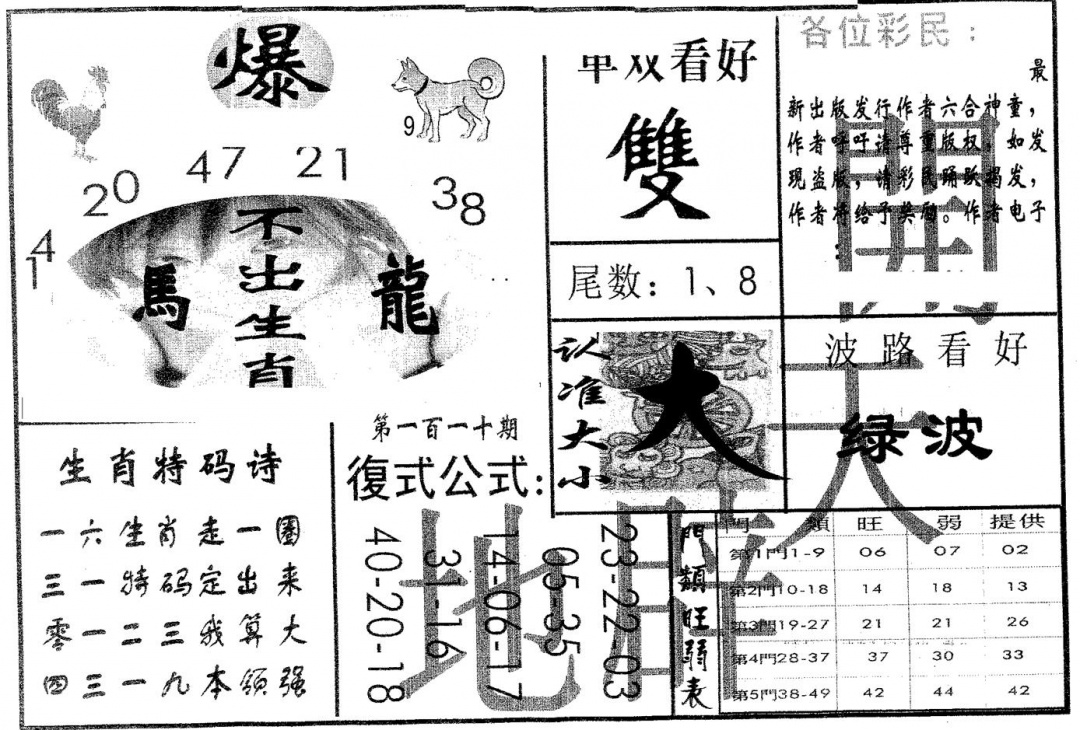 爆
9
14 20 47 21 38
馬
不出生肖
龍
单双看好
雙
尾数：1、8
各位彩民：
最
新出版发行作者六合神童，
作者呼吁请尊重版权。如发
现盗版，请彩民踊跃揭发，
作者将给予奖励。作者电子
：
認准大小
大
波路看好
绿波
生肖特码诗
一六生肖走一圈
三一特码定出来
零一二三我算大
四三一九本领强
第一百一十期
復式公式：
40-20-18
31-16
14-06-17
05-35
23-22-03
門類旺弱表
門 類 旺 弱 提供
第1門1-9 06 07 02
第2門10-18 14 18 13
第3門19-27 21 21 26
第4門28-37 37 30 33
第5門38-49 42 44 42
開
天
地